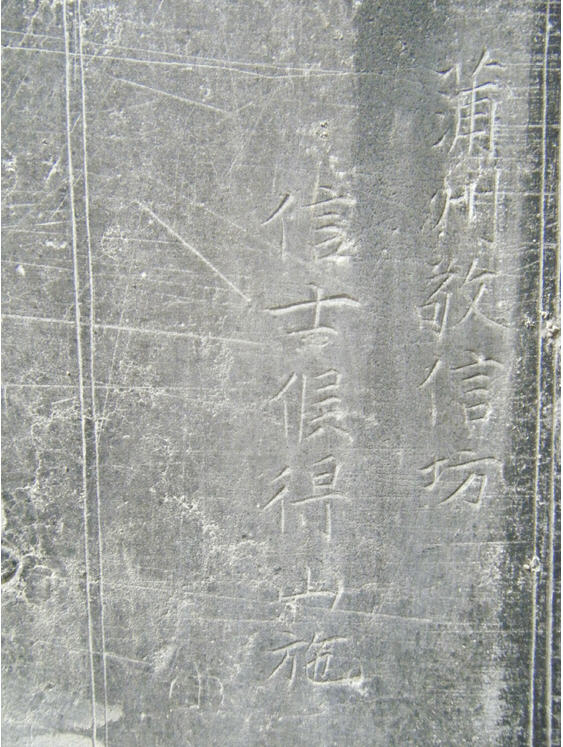 蒲州敬信坊
信士候得山施